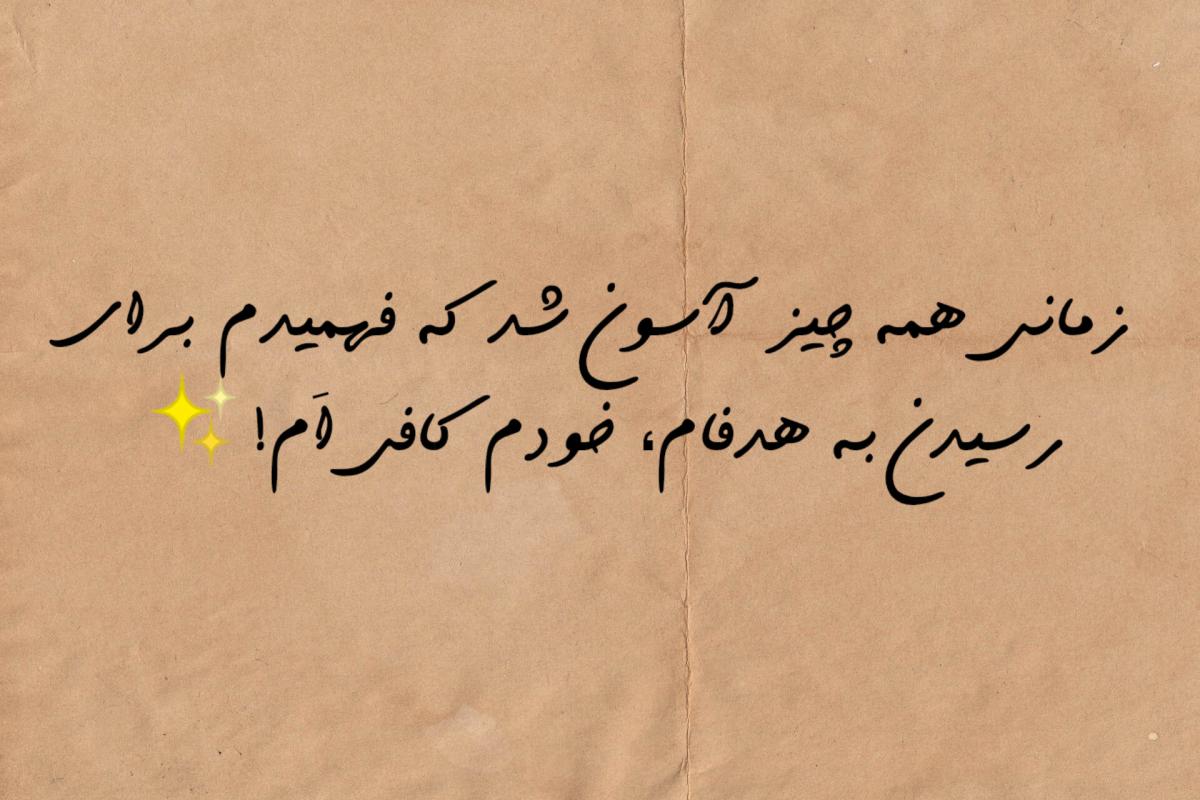 زمانی همه چیز آسون شد که فهمیدم برای
رسیدن به هدفام، خودم کافی اَم! ✨